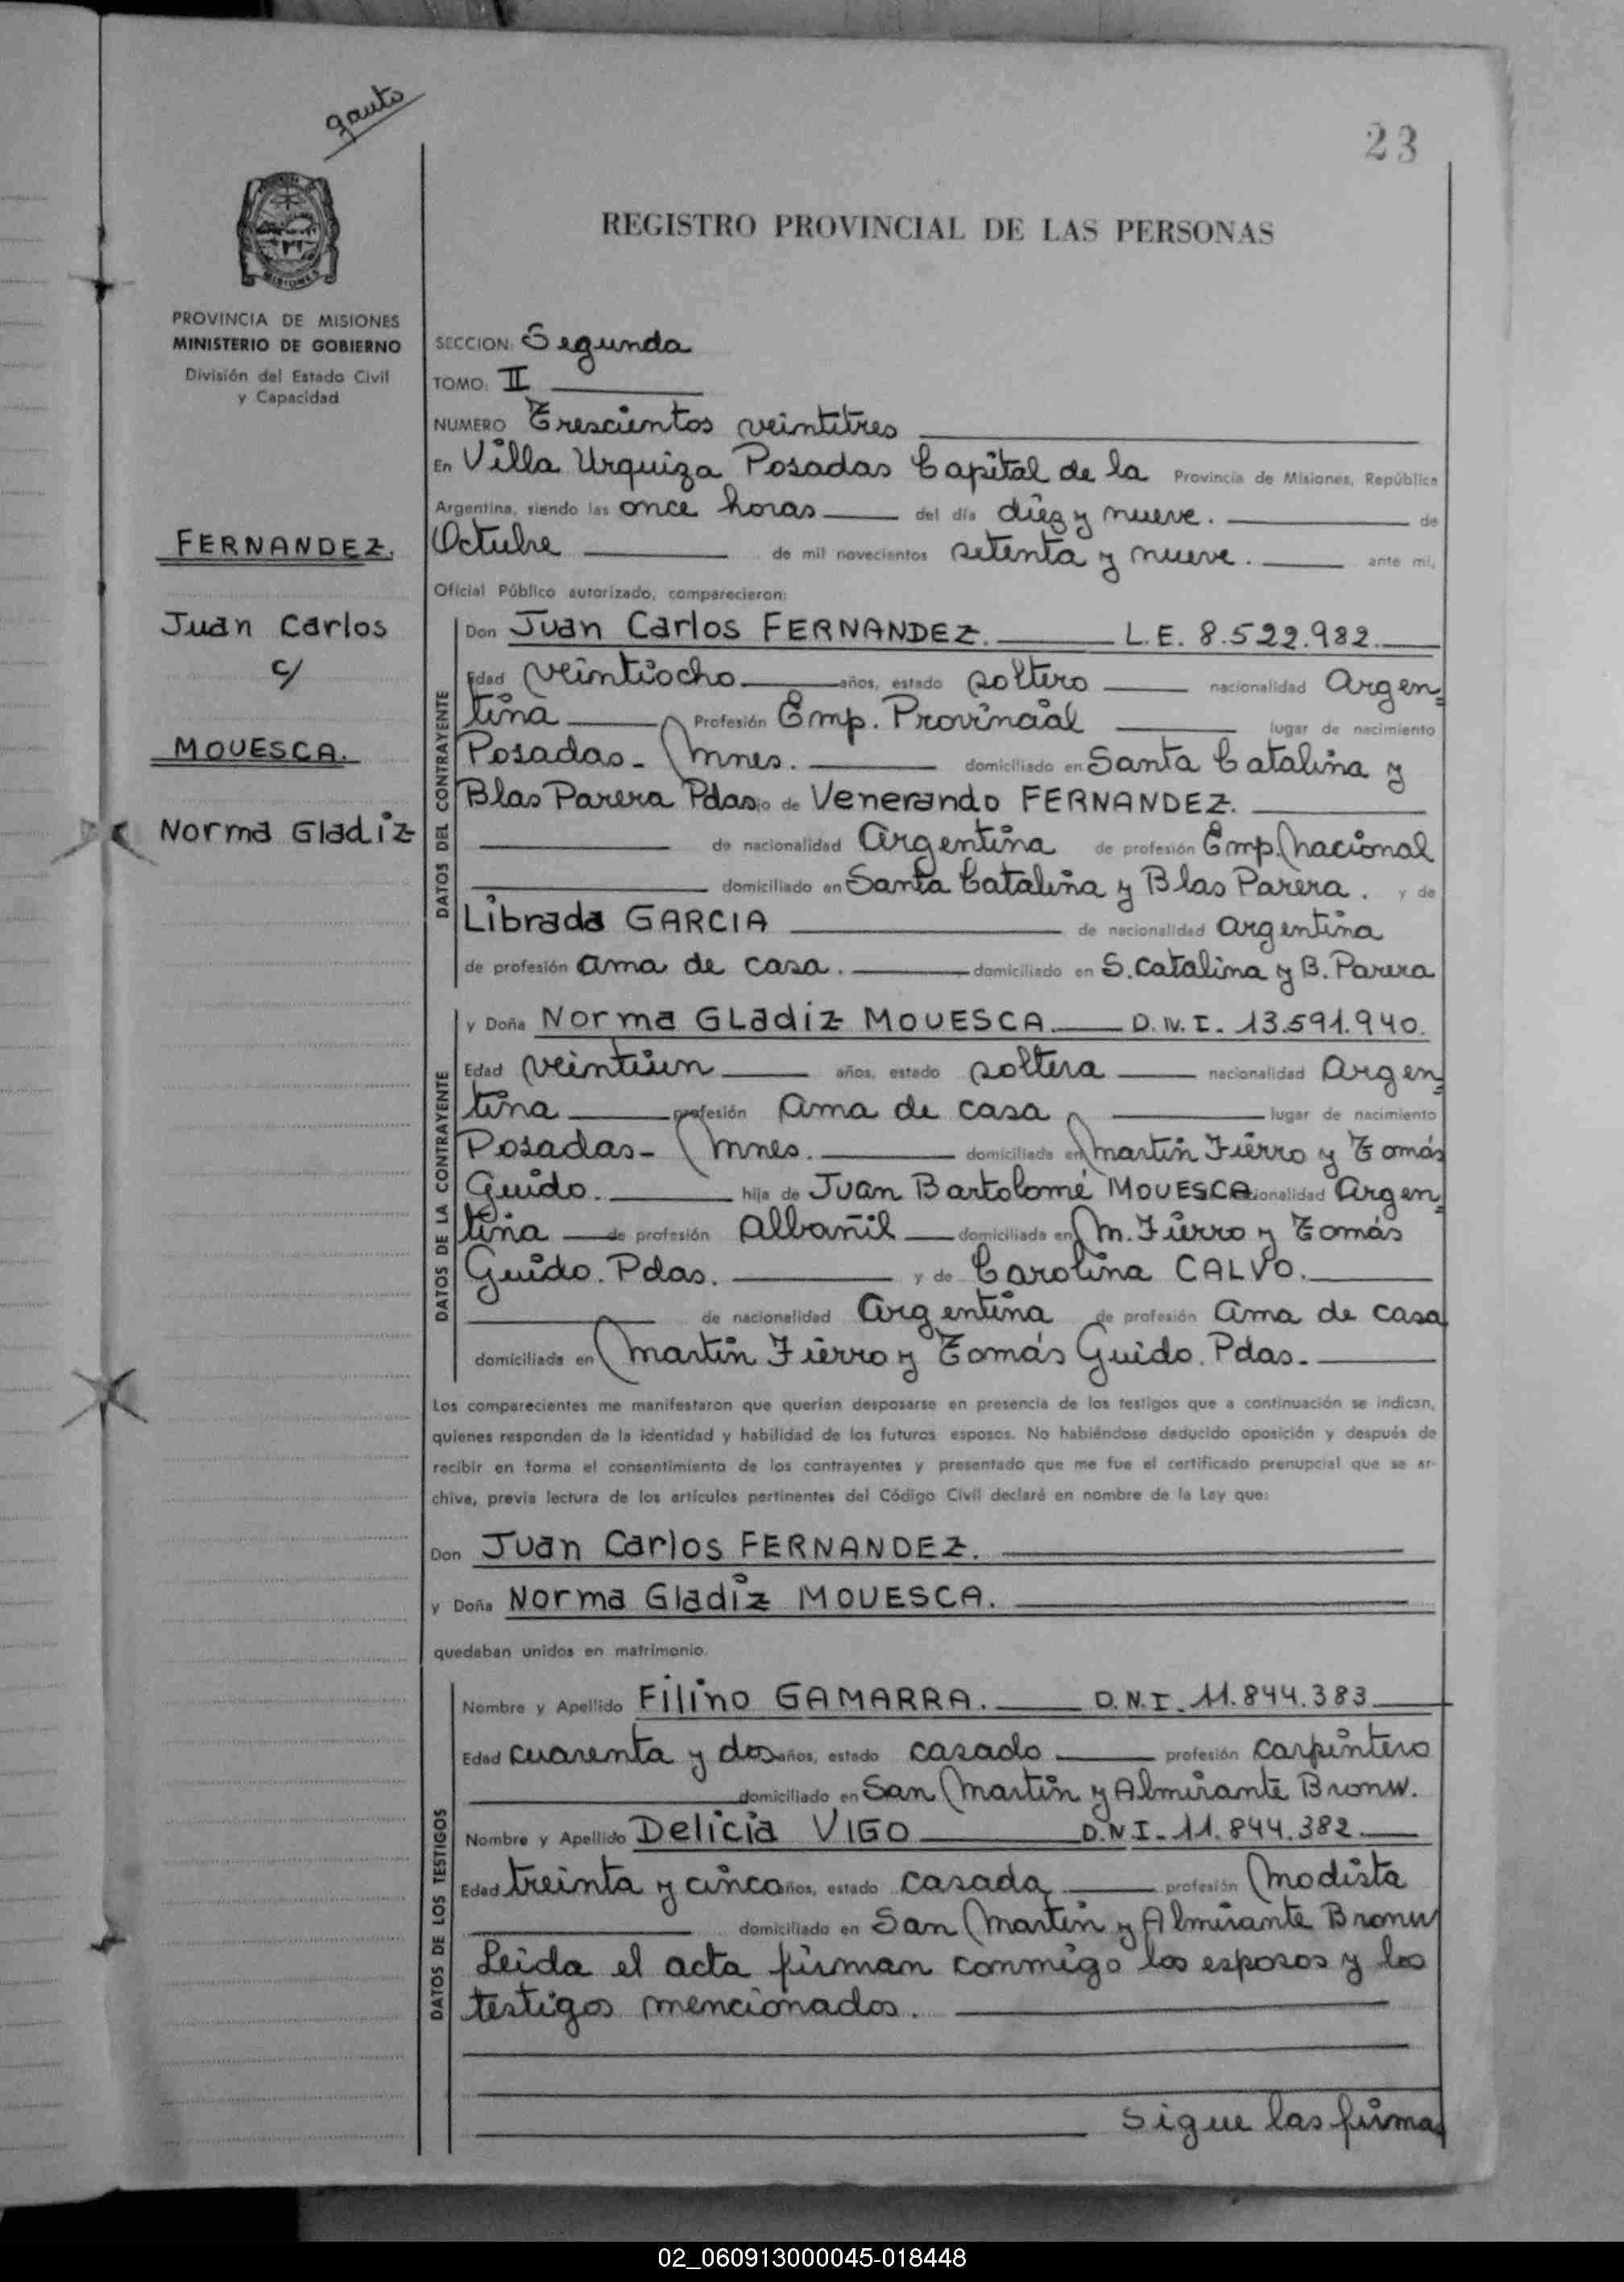 gauto
23
REGISTRO PROVINCIAL DE LAS PERSONAS
MISIONES
PROVINCIA DE MISIONES
MINISTERIO DE GOBIERNO
División del Estado Civil
y Capacidad
FERNANDEZ.
Juan Carlos
c/
MOUESCA.
Norma Gladiz
SECCION: Segunda
TOMO: II
NUMERO Trescientos veintitres
En Villa Urquiza Posadas Capital de la Provincia de Misiones, República
Argentina, siendo las once horas del día diez y nueve. de
Octubre de mil novecientos setenta y nueve. ante mi,
Oficial Público autorizado, comparecieron:
DATOS DEL CONTRAYENTE
Don Juan Carlos FERNANDEZ. L.E. 8.522.982.
Edad veintiocho años, estado soltero nacionalidad Argen=
tina Profesión Emp. Provincial lugar de nacimiento
Posadas- Mnes. domiciliado en Santa Catalina y
Blas Parera Pdas jo de Venerando FERNANDEZ.
de nacionalidad Argentina de profesión Emp. Nacional
domiciliado en Santa Catalina y Blas Parera. y de
Librada GARCIA de nacionalidad Argentina
de profesión ama de casa. domiciliado en S. Catalina y B. Parera
DATOS DE LA CONTRAYENTE
y Doña Norma GLadiz MOUESCA. D.N.I. 13.591.940.
Edad veintiun años, estado soltera nacionalidad Argen=
tina profesión Ama de casa lugar de nacimiento
Posadas- Mnes. domiciliada en Martin Fierro y Tomás
Guido. hija de Juan Bartolomé MOUESCA cionalidad Argen=
tina de profesión Albañil domiciliada en M. Fierro y Tomás
Guido. Pdas. y de Carolina CALVO.
de nacionalidad Argentina de profesión Ama de casa
domiciliada en Martin Fierro y Tomás Guido. Pdas.
Los comparecientes me manifestaron que querían desposarse en presencia de los testigos que a continuación se indican,
quienes responden de la identidad y habilidad de los futuros esposos. No habiéndose deducido oposición y después de
recibir en forma el consentimiento de los contrayentes y presentado que me fue el certificado prenupcial que se ar-
chiva, previa lectura de los artículos pertinentes del Código Civil declaré en nombre de la Ley que:
Don Juan Carlos FERNANDEZ.
y Doña Norma Gladiz MOUESCA.
quedaban unidos en matrimonio.
DATOS DE LOS TESTIGOS
Nombre y Apellido Filino GAMARRA. D.N.I. 11.844.383
Edad cuarenta y dos años, estado casado profesión carpintero
domiciliado en San Martin y Almirante Bronw.
Nombre y Apellido Delicia VIGO D.N.I. 11.844.382
Edad treinta y cinco años, estado casada profesión Modista
domiciliado en San Martin y Almirante Bronw
Leida el acta firman conmigo los esposos y los
testigos mencionados.
Sigue las firmas
02_060913000045-018448